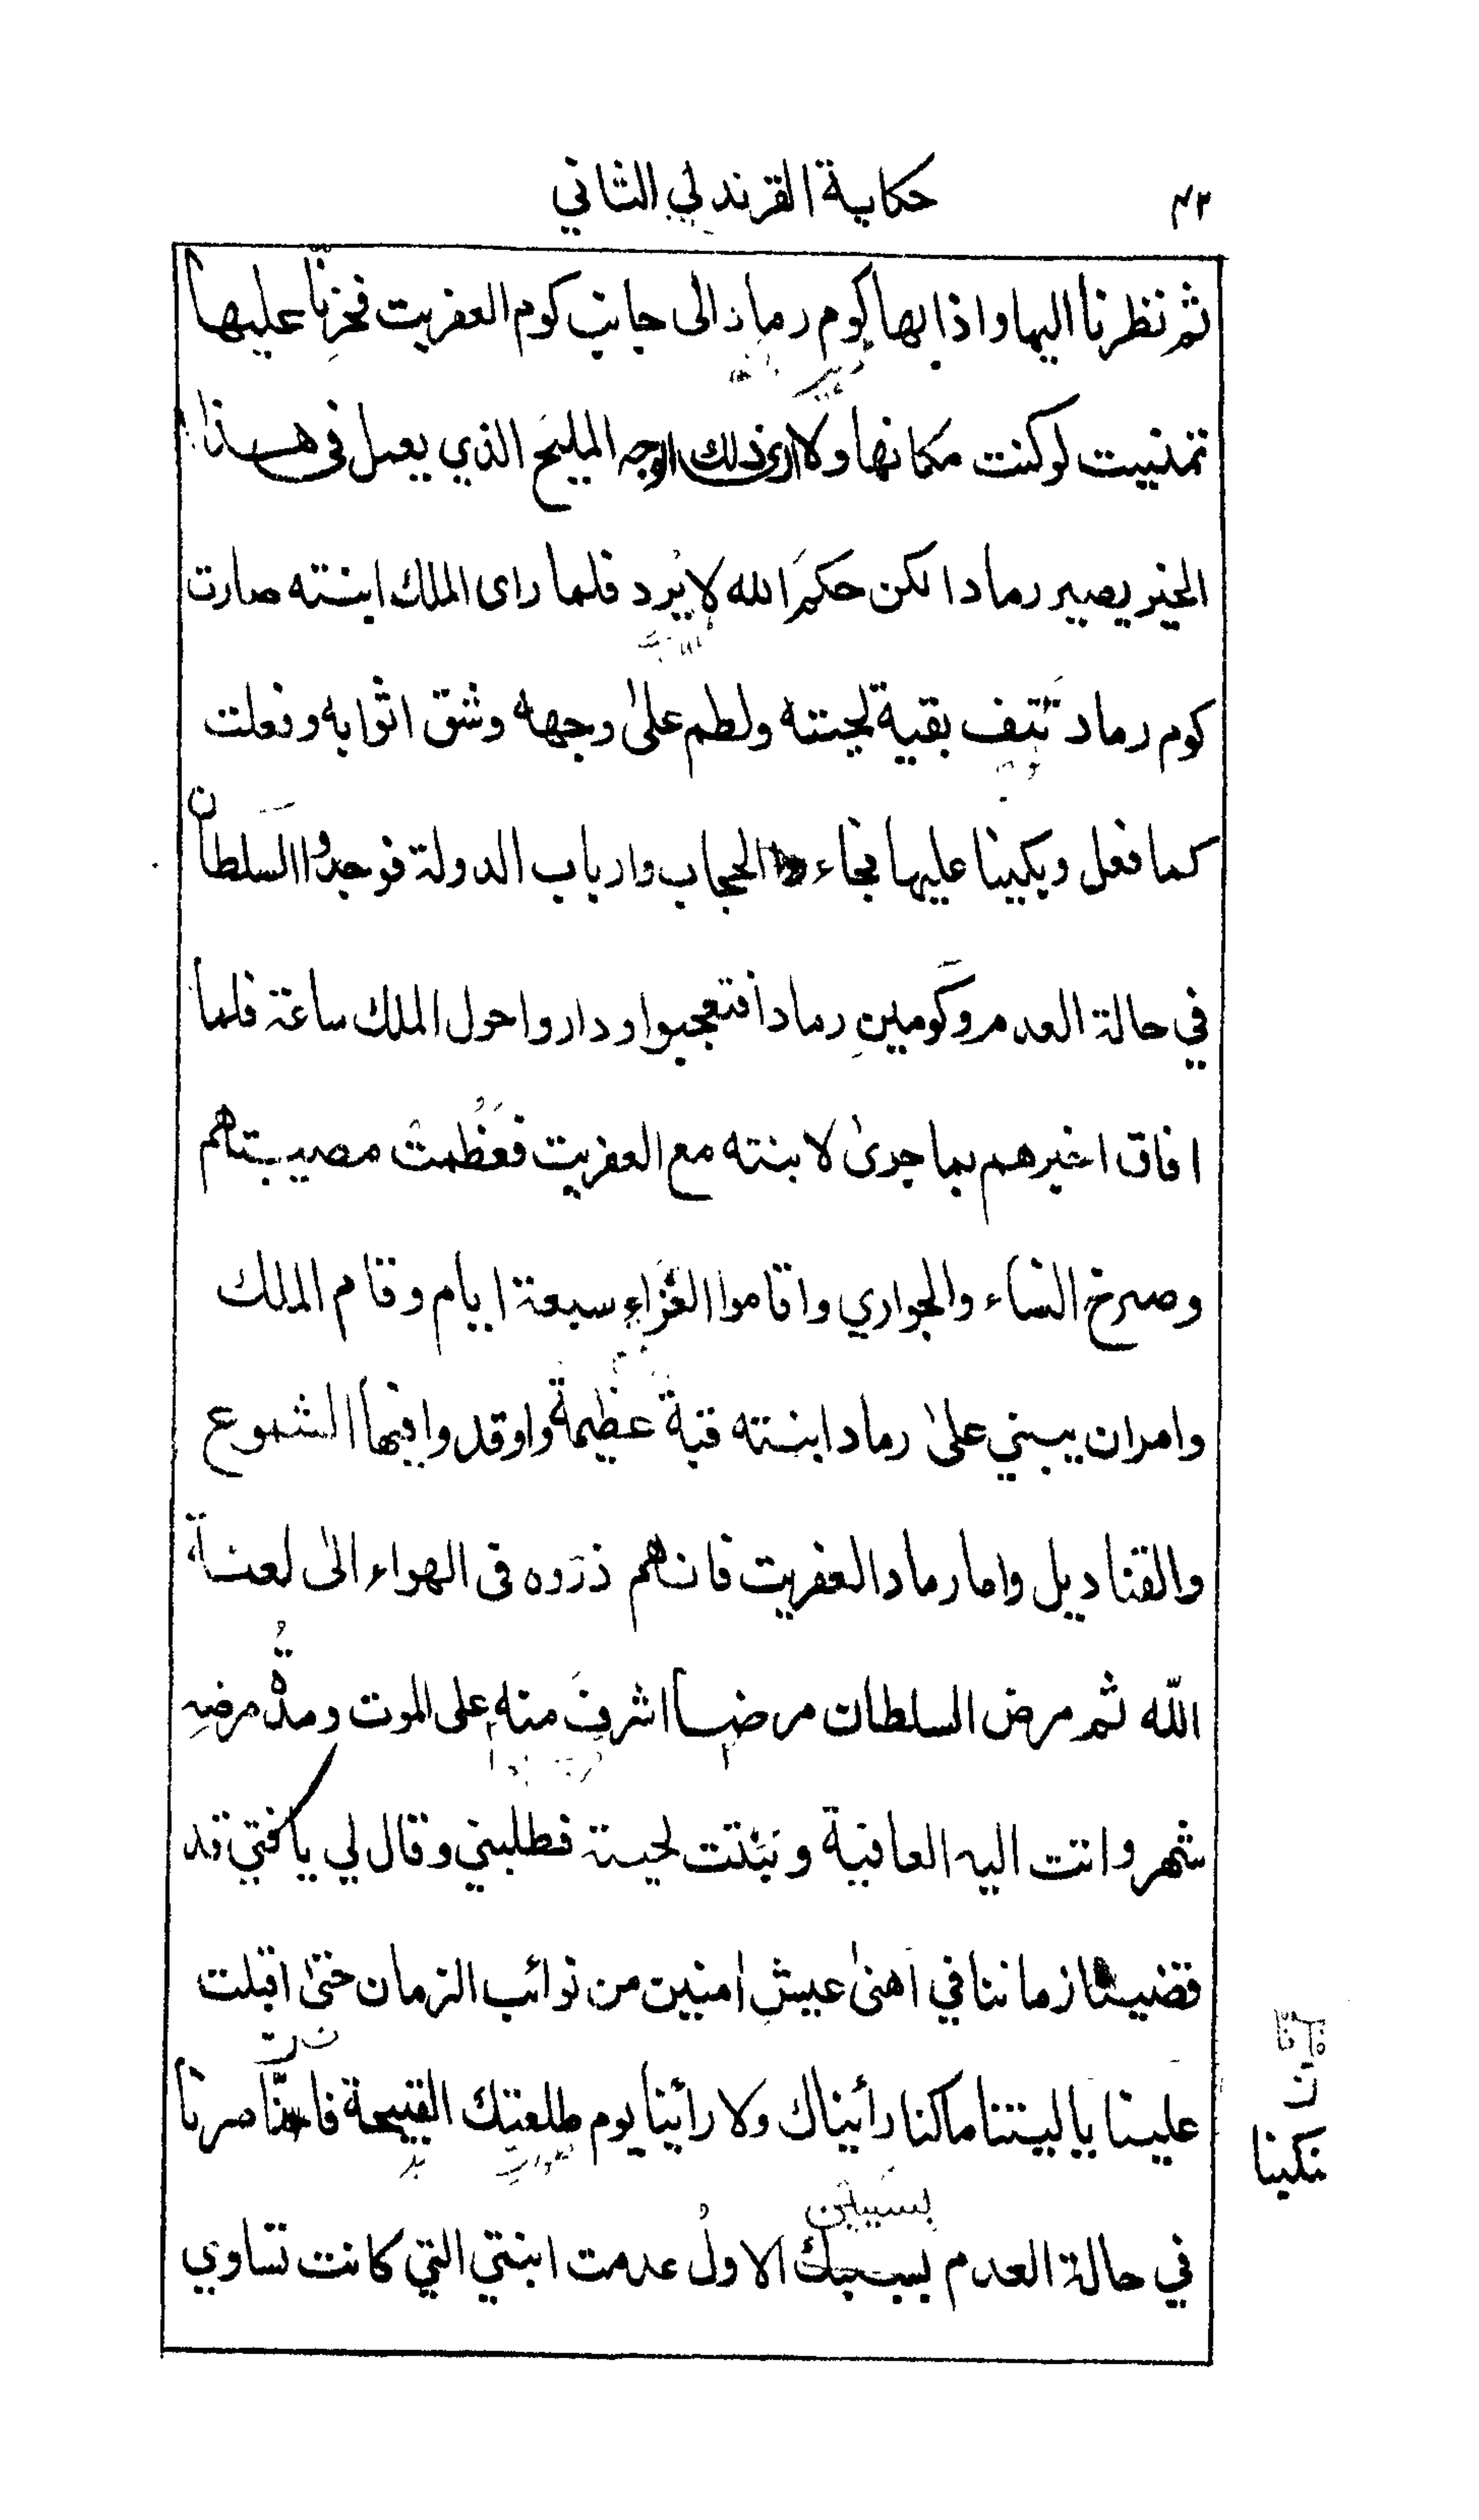 حكاية القرندلي الثاني
ثم نظرنا اليها واذا بها كوم رماد الى جانب كوم العفريت فحزنّا عليها
تمنيت لو كنت مكانها ولا ارى ذلك الوجه المليح الذي يعمل فى هـذا
الخير يصير رمادا لكن حكم الله لا يُرد فلما راى الملك ابنته صارت
كوم رماد نَتِف بقية لحيته ولطم علىٰ وجهه وشق اثوابه وفعلت
كما فعل وبكينا عليها فجاء الحجاب وارباب الدولة فوجدُوا السلطان
في حالة العدم وكَومينِ رمادا فتعجبوا وداروا حول الملك ساعة فلما
افاق اخبرهم بما جرىٰ لابنته مع العفريت فعَظُمتْ مصيبتهم
وصرخ النساء والجواري واقاموا العَزاءِ سبعة ايام وقام الملك
وامران يبني علىٰ رماد ابنته قبةً عظِيمةً واوقدوا فيها الشموع
والقناديل واما رماد العفريت فانهم ذرَوه فى الهواء الىٰ لعنـة
اللّه ثم مرض السلطان مرضـا اشرفَ منه على الموت ومدةُ مرضِه
شهر واتت اليه العافية ونَبَتت لحيـة فطلبني وقال لي يا فتي قد
قضينا زماننا في اَهنىٰ عيشٍ امنين من نوائب الزمان حتىٰ اقبلت
علينا يا ليتنا ما كنا رأيناك ولا رأينا يوم طلعتِك القبيحة صرنا
في حالة العدم بسببك الاولُ عدمت ابنتي التي كانت تساوي
بسَببَين
ن